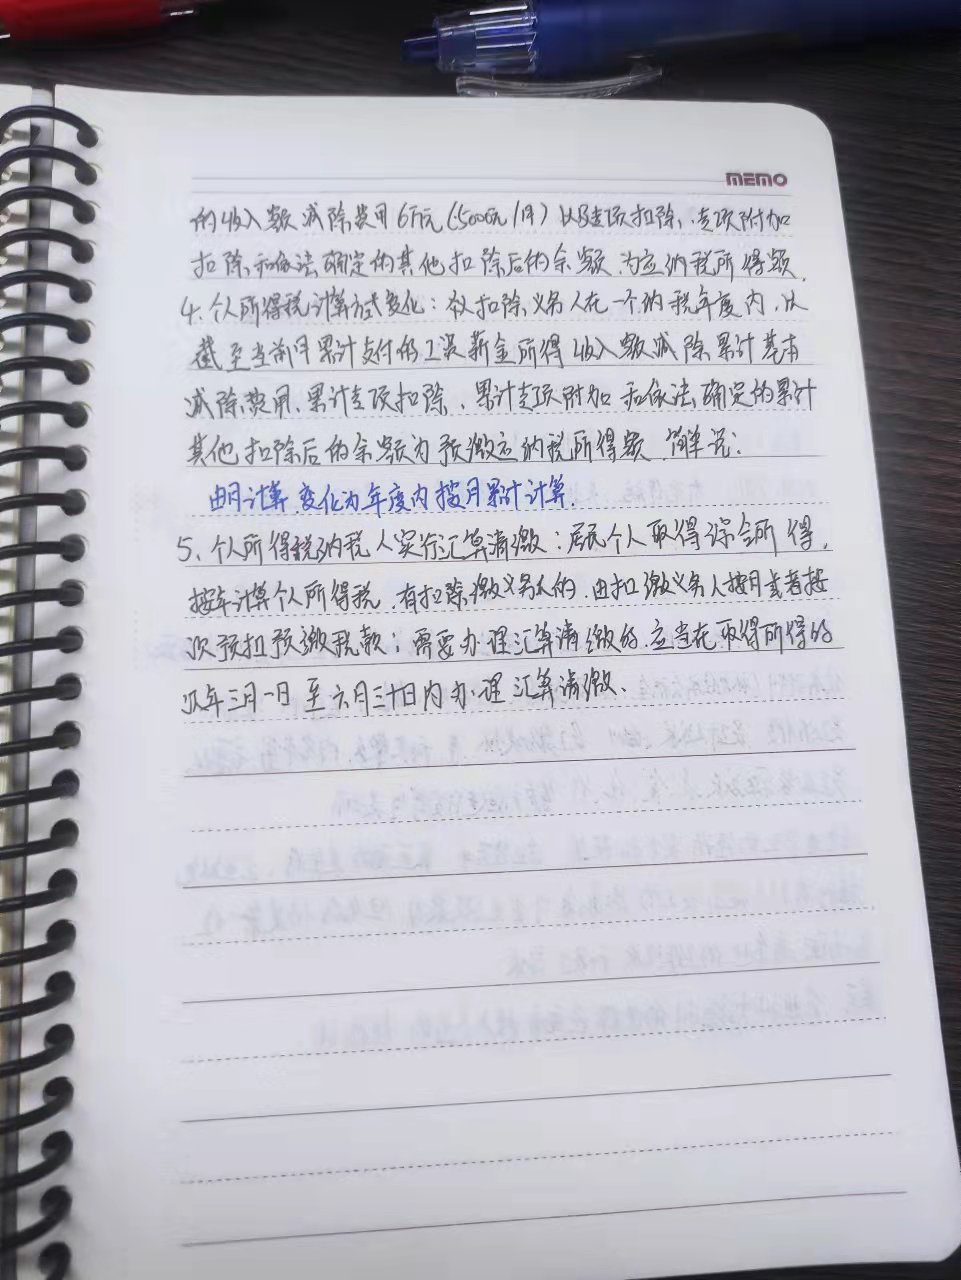 MEMO
的收入额减除费用6万元(5000元/月)以及专项扣除、专项附加
扣除和依法确定的其他扣除后的余额,为应纳税所得额.
4.个人所得税计算方式变化:扣除义务人在一个纳税年度内,以
截至当前月累计支付的工资薪金所得收入额减除累计基本
减除费用、累计专项扣除、累计专项附加和依法确定的累计
其他扣除后的余额为预缴应纳税所得额.简单说:
由月计算,变化为年度内按月累计计算.
5、个人所得税纳税人实行汇算清缴:居民个人取得综合所得,
按年计算个人所得税,有扣除缴义务人的,由扣缴义务人按月或者按
次预扣预缴税款;需要办理汇算清缴的,应当在取得所得的
次年三月一日至六月三十日内办理汇算清缴、